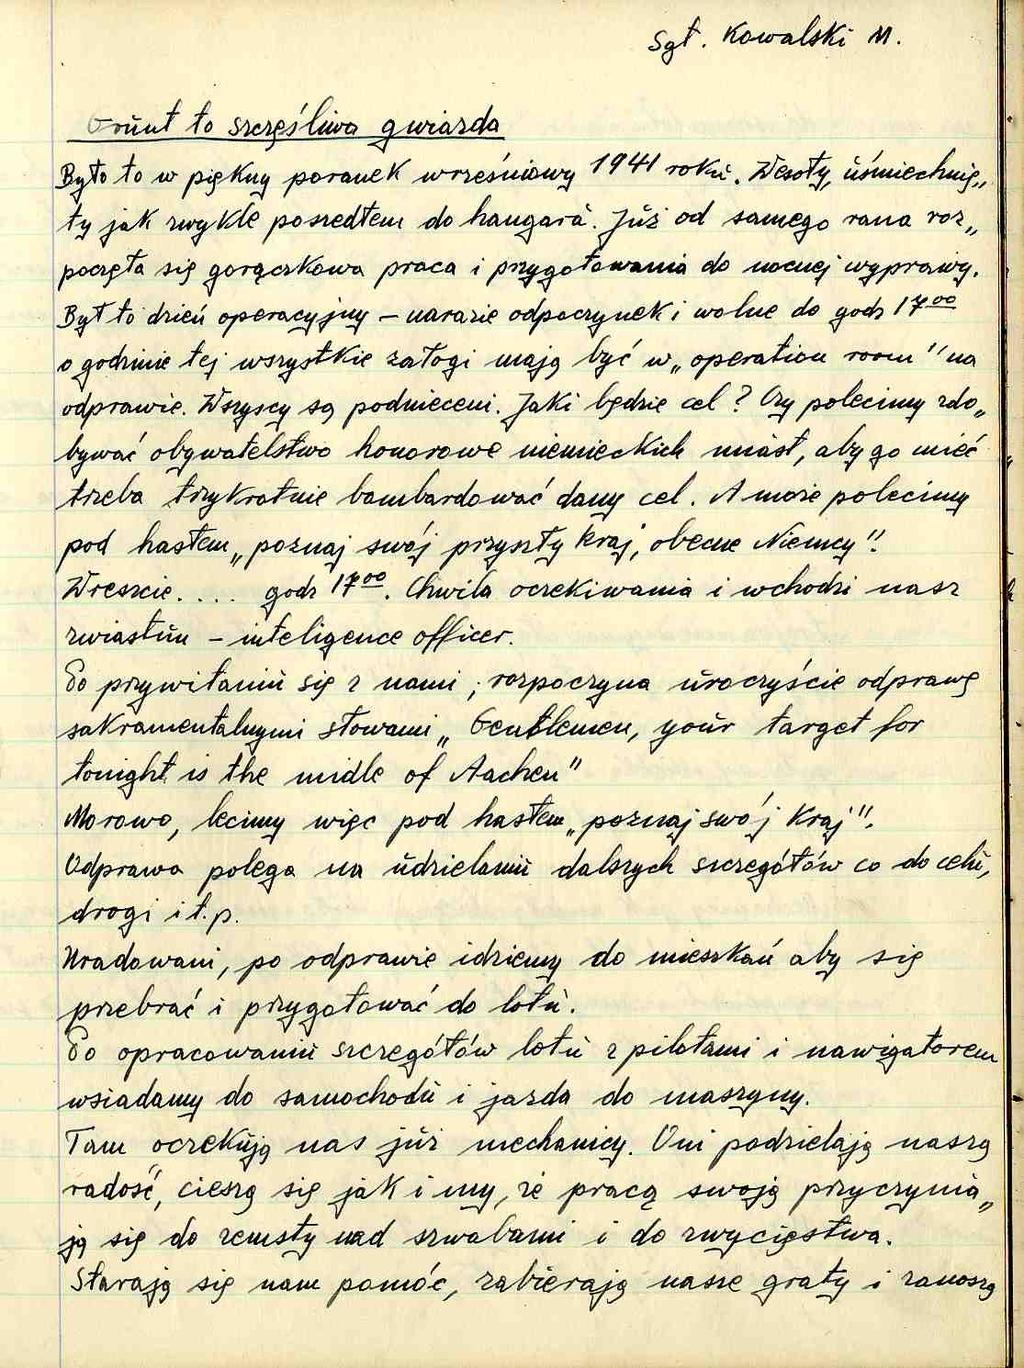 Sgt. Kowalski M.
Grunt to szczęśliwa gwiazda
Było to w piękny poranek wrześniowy 1941 roku. Wesoły, uśmiechnię„
ty jak zwykle poszedłem do hangaru. Już od samego rana roz„
poczęła się gorączkowa praca i przygotowania do nocnej wyprawy.
Był to dzień operacyjny – narazie odpoczynek i wolne do godz 17⁰⁰
o godzinie tej wszystkie załogi mają być w „operation room" na
odprawie. Wszyscy są podnieceni. Jaki będzie cel? Czy polecimy zdo„
bywać obywatelstwo honorowe niemieckich miast, aby go mieć
trzeba trzykrotnie bombardować dany cel. A może polecimy
pod hasłem „poznaj swój przyszły kraj, obecne Niemcy".
Wreszcie. ... godz 17⁰⁰. Chwila oczekiwania i wchodzi nasz
zwiastun – inteligence officer.
Po przywitaniu się z nami; rozpoczyna uroczyście odprawę
sakramentalnymi słowami „Gentlemen, your target for
tonight is the midle of Aachen"
Morowo, lecimy więc pod hasłem „poznaj swój kraj".
Odprawa polega na udzielaniu dalszych szczegółów co do celu,
drogi i t.p.
Uradowani, po odprawie idziemy do mieszkań aby się
przebrać i przygotować do lotu.
Po opracowaniu szczegółów lotu z pilotami i nawigatorem
wsiadamy do samochodu i jazda do maszyny.
Tam oczekują nas już mechanicy. Oni podzielają naszą
radość, cieszą się jak i my, że pracą swoją przyczynia„
ją się do zemsty nad szwabami i do zwycięstwa.
Starają się nam pomóc, zabierają nasze graty i zanoszą